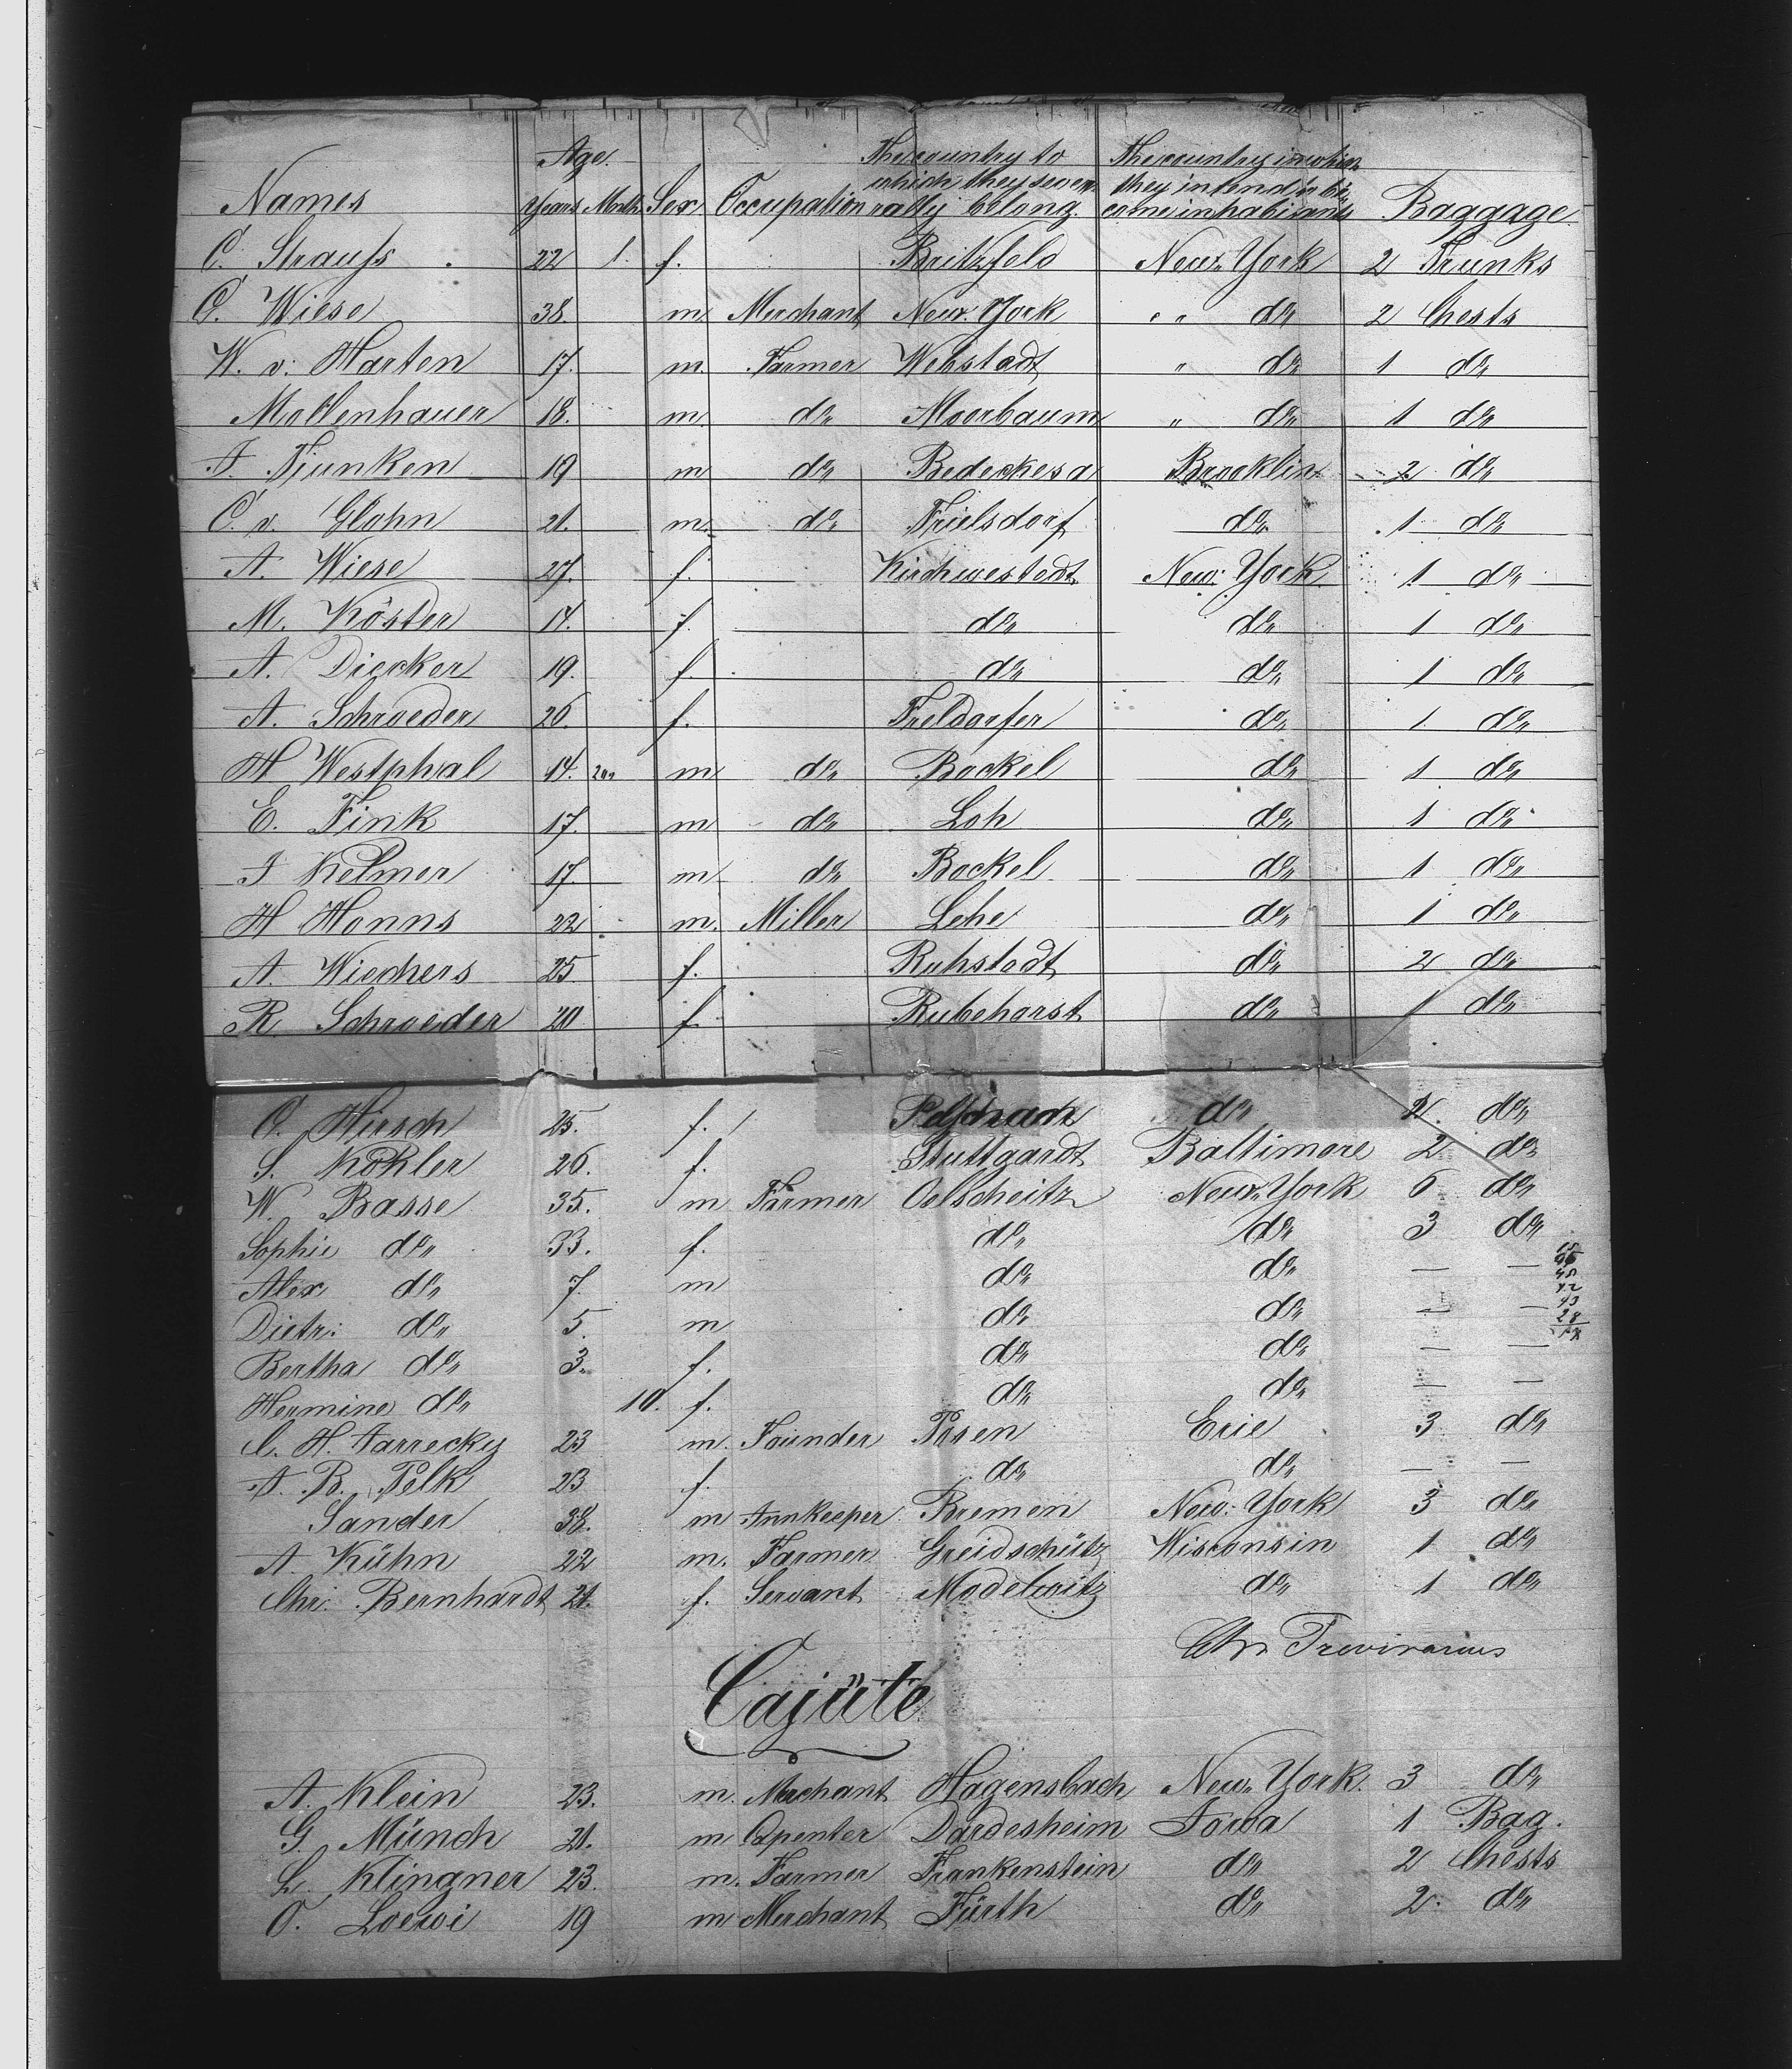 Names Age. Years Month Sex Occupation The country to which they severally belong. The country in which they intend to become inhabitants Baggage.
C. Strauß 22 1. f. Britzfeld New-York 2 Trunks
C. Wiese 38. m. Merchant New-York " " do 2 Chests
W. v. Harten 17. m. Farmer Wehstadt " do 1 do
Mollenhauer 18. m. do Moorbaum " do 1 do
F. Tiunken 19 m do Bedeckesa Brooklin 2 do
C. v. Glahn 21. m. do Frielsdorf do 1 do
A. Wiese 27. f. Kirchwestedt New-York 1 do
M. Köster 14. f. do do 1 do
A. Diecker 19. f. do do 1 do
A. Schroeder 26. f. Freldorfer do 1 do
H Westphal 14. m do Bockel do 1 do
E. Fink 17. m do Loh do 1 do
F Kelmer 17. m do Bockel do 1 do
H Honns 22 m. Miller Lehe do 1 do
A. Wiechers 25 f. Ruhstadt do 2 do
R. Schroeder 20 f. Rubehorst do 1 do
C. Hirsch 25. f. do 2 do
S. Köhler 26. f. Stuttgardt Baltimore 2 do
W. Basse 35. m Farmer Oelscheitz New-York 6 do
Sophie do 33. f. do do 3 do
Alex do 7. m do do — —
Dietr: do 5. m do do — —
Bertha do 3. f. do do — —
Hermine do 10. f. do do — —
C. H. Tarrecky 23 m. Founder Posen Erie 3 do
A. B. Pelk 23 f. do do — —
Sander 38. m Innkeeper Bremen New-York 3 do
A. Kühn 22 m. Farmer Greidschütz Wisconsin 1 do
Chr. Bernhardt 21. f. Servant Modelwitz do 1 do
Chr Trevirarius
Cajüte
A. Klein 23. m. Merchant Hagensbach New-York. 3 do
G. Münch 21. m Capenter Dardesheim Iowa 1 Bag.
L. Klingner 23. m. Farmer Frankenstein do 2 Chests
O. Loewi 19 m Merchant Fürth do 2. do